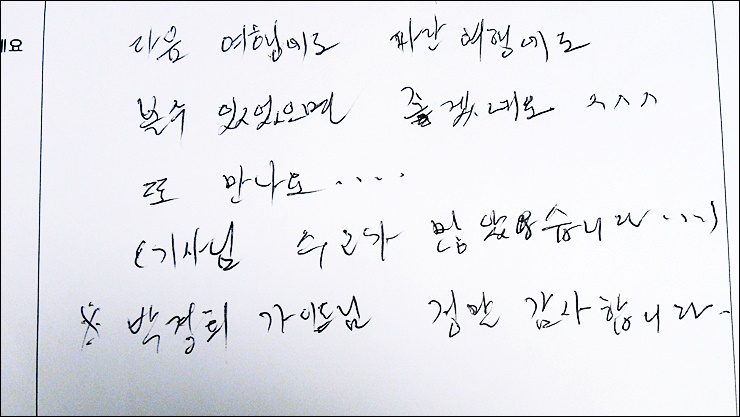 세요
다음 여행에도 파란여행에도
볼수 있었으면 좋겠네요 ^^^
또 만나요....
(기사님 수고가 많았습니다...)
※ 박경희 가이드님 정말 감사합니다.